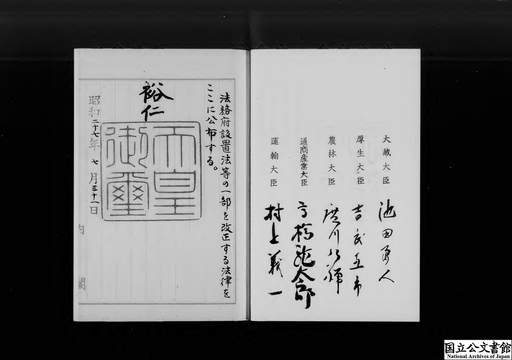 大蔵大臣 池田勇人
厚生大臣 吉武恵市
農林大臣 廣川弘禅
通商産業大臣 高橋龍太郎
運輸大臣 村上義一
法務府設置法等の一部を改正する法律を
ここに公布する。
裕仁
天皇
御璽
昭和二十七年七月三十一日
内閣
国立公文書館
National Archives of Japan